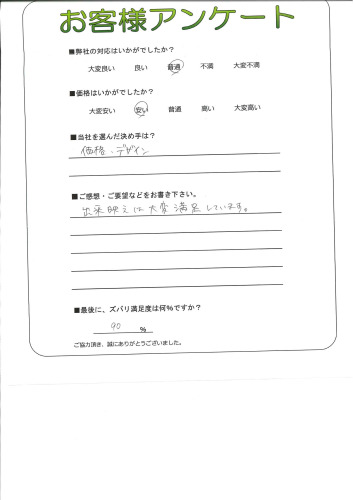 お客様アンケート
■弊社の対応はいかがでしたか？
大変良い 良い 普通 不満 大変不満
■価格はいかがでしたか？
大変安い 安い 普通 高い 大変高い
■当社を選んだ決め手は？
価格、デザイン
■ご感想・ご要望などをお書き下さい。
出来映えは大変満足しています。
■最後に、ズバリ満足度は何％ですか？
90 ％
ご協力頂き、誠にありがとうございました。